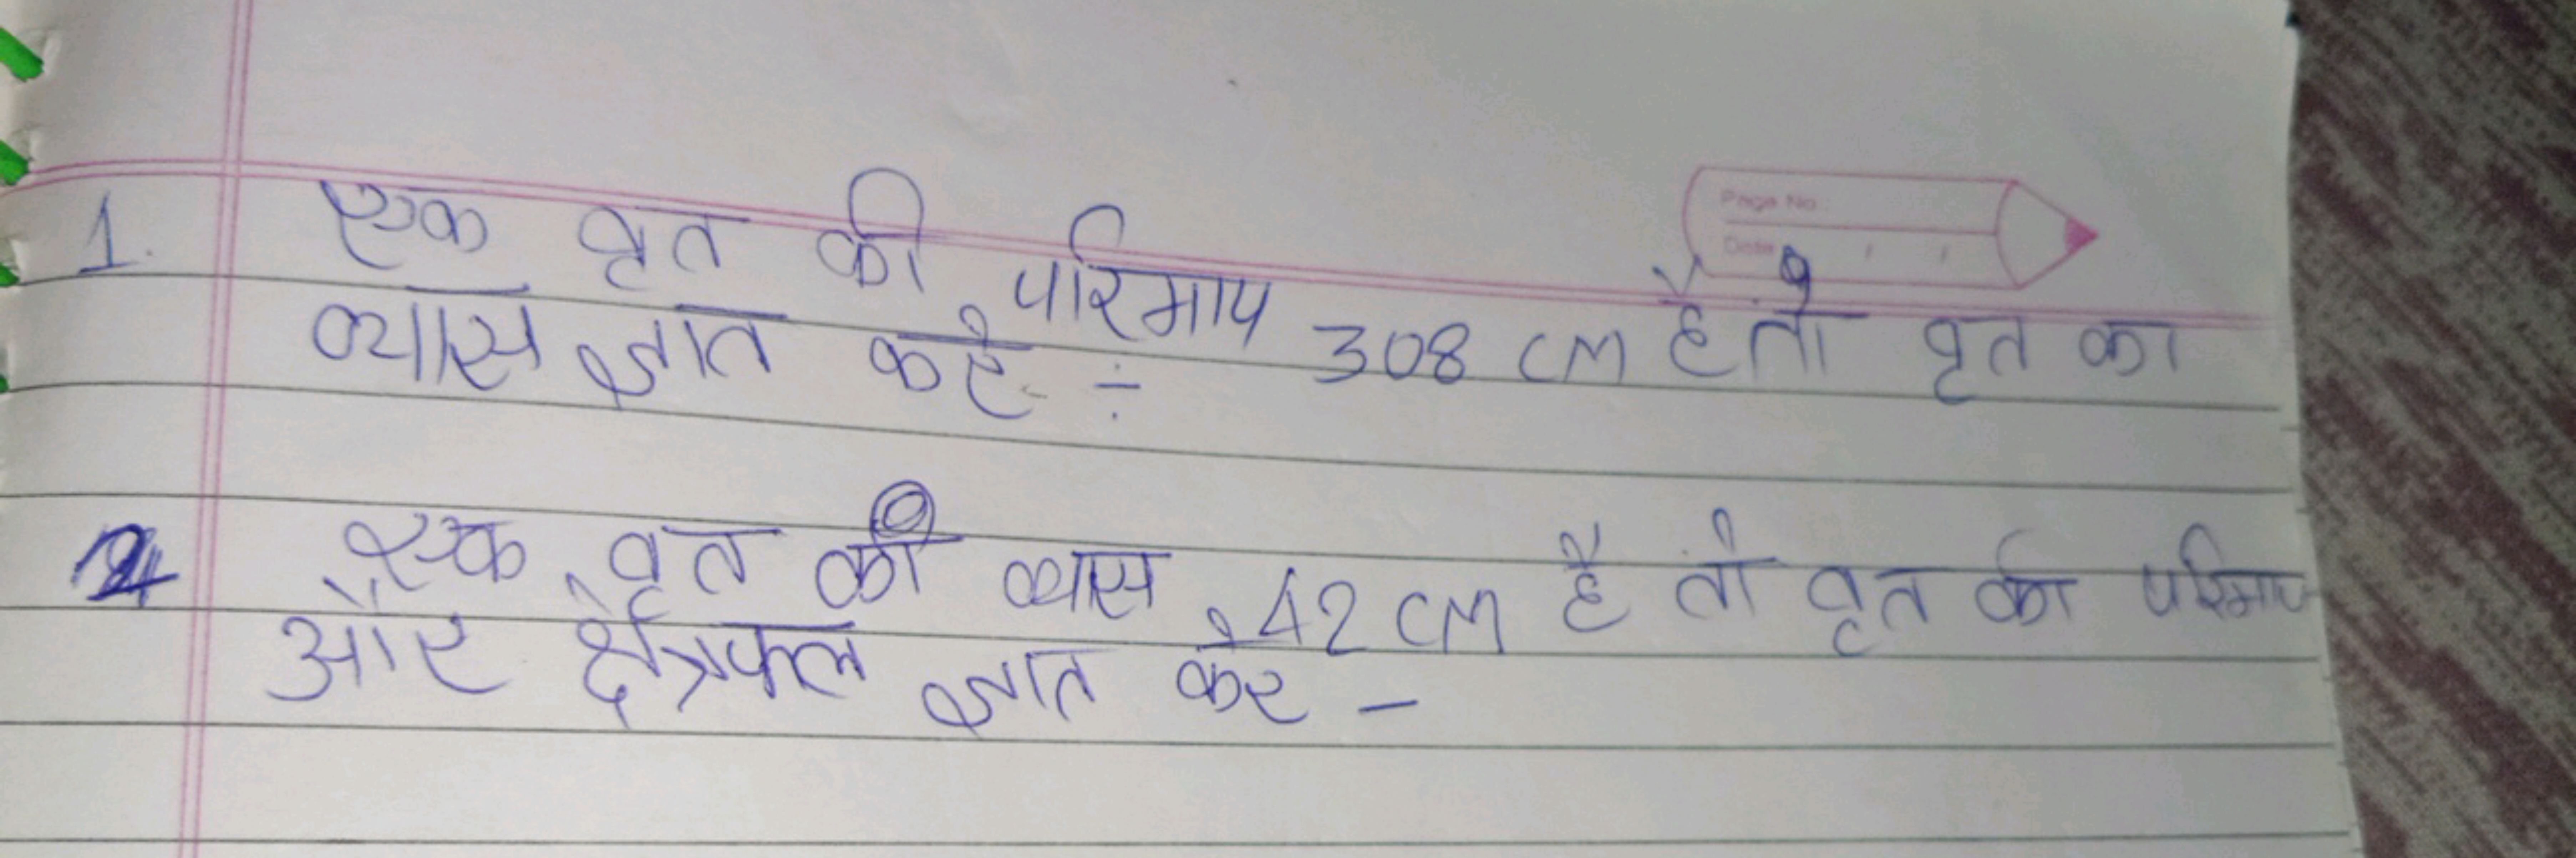 Page No.
Date / /
1. एक वृत की परिमाप 308 CM है तो वृत का
व्यास ज्ञात करे ÷
2 एक वृत की व्यास 42 CM है तो वृत की परिमाप
और क्षेत्रफल ज्ञात करे -